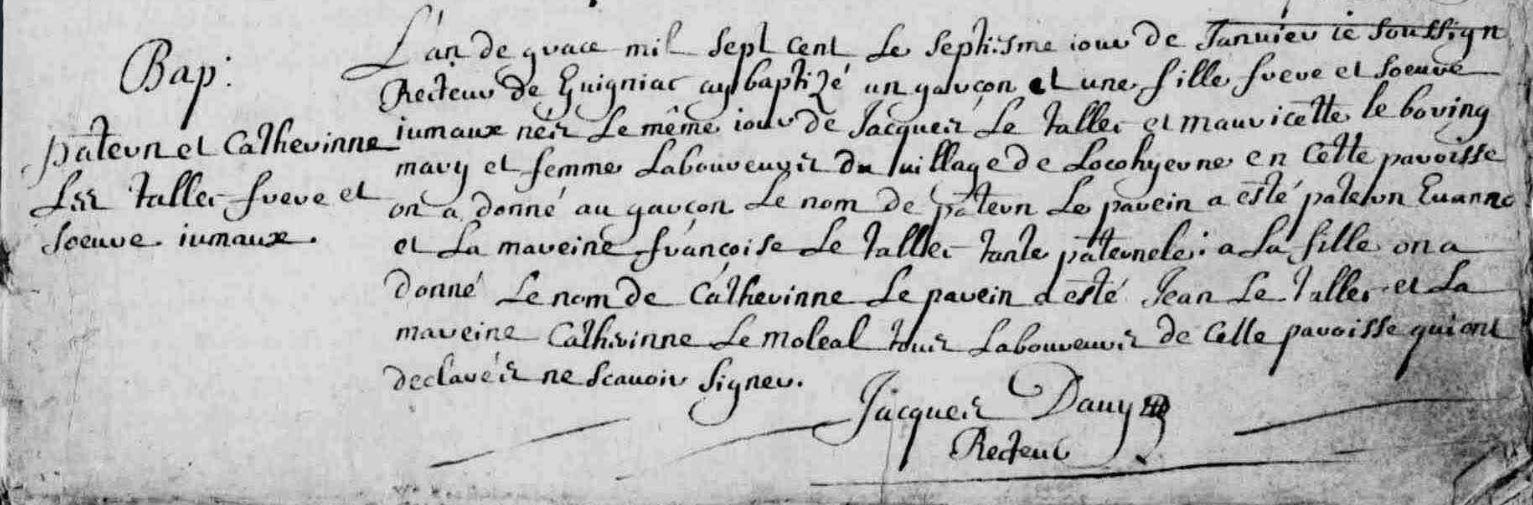 Bap.
patern et Catherinne
Les tallec frere et
soeure iumaux.
L'an de grace mil sept cent le septiesme iour de Januier ie soussign
Recteur de Guigniac ay baptizé un garçon et une fille frere et soeure
iumaux néés le même iour de Jacques Le tallec et mauricette le boving
mary et femme Laboureurs du uillage de Locohyerne en cette paroisse
on a donné au garçon le nom de patern le parein a esté patern Euanno
et La mareine françoise Le tallec tante paternele. a La fille on a
donné Le nom de Catherinne Le parein a esté Jean Le tallec et La
mareine Catherinne Le moleal tous Laboureurs de cette paroisse qui ont
declarés ne scauoir signer.
Jacques Dauy
Recteur